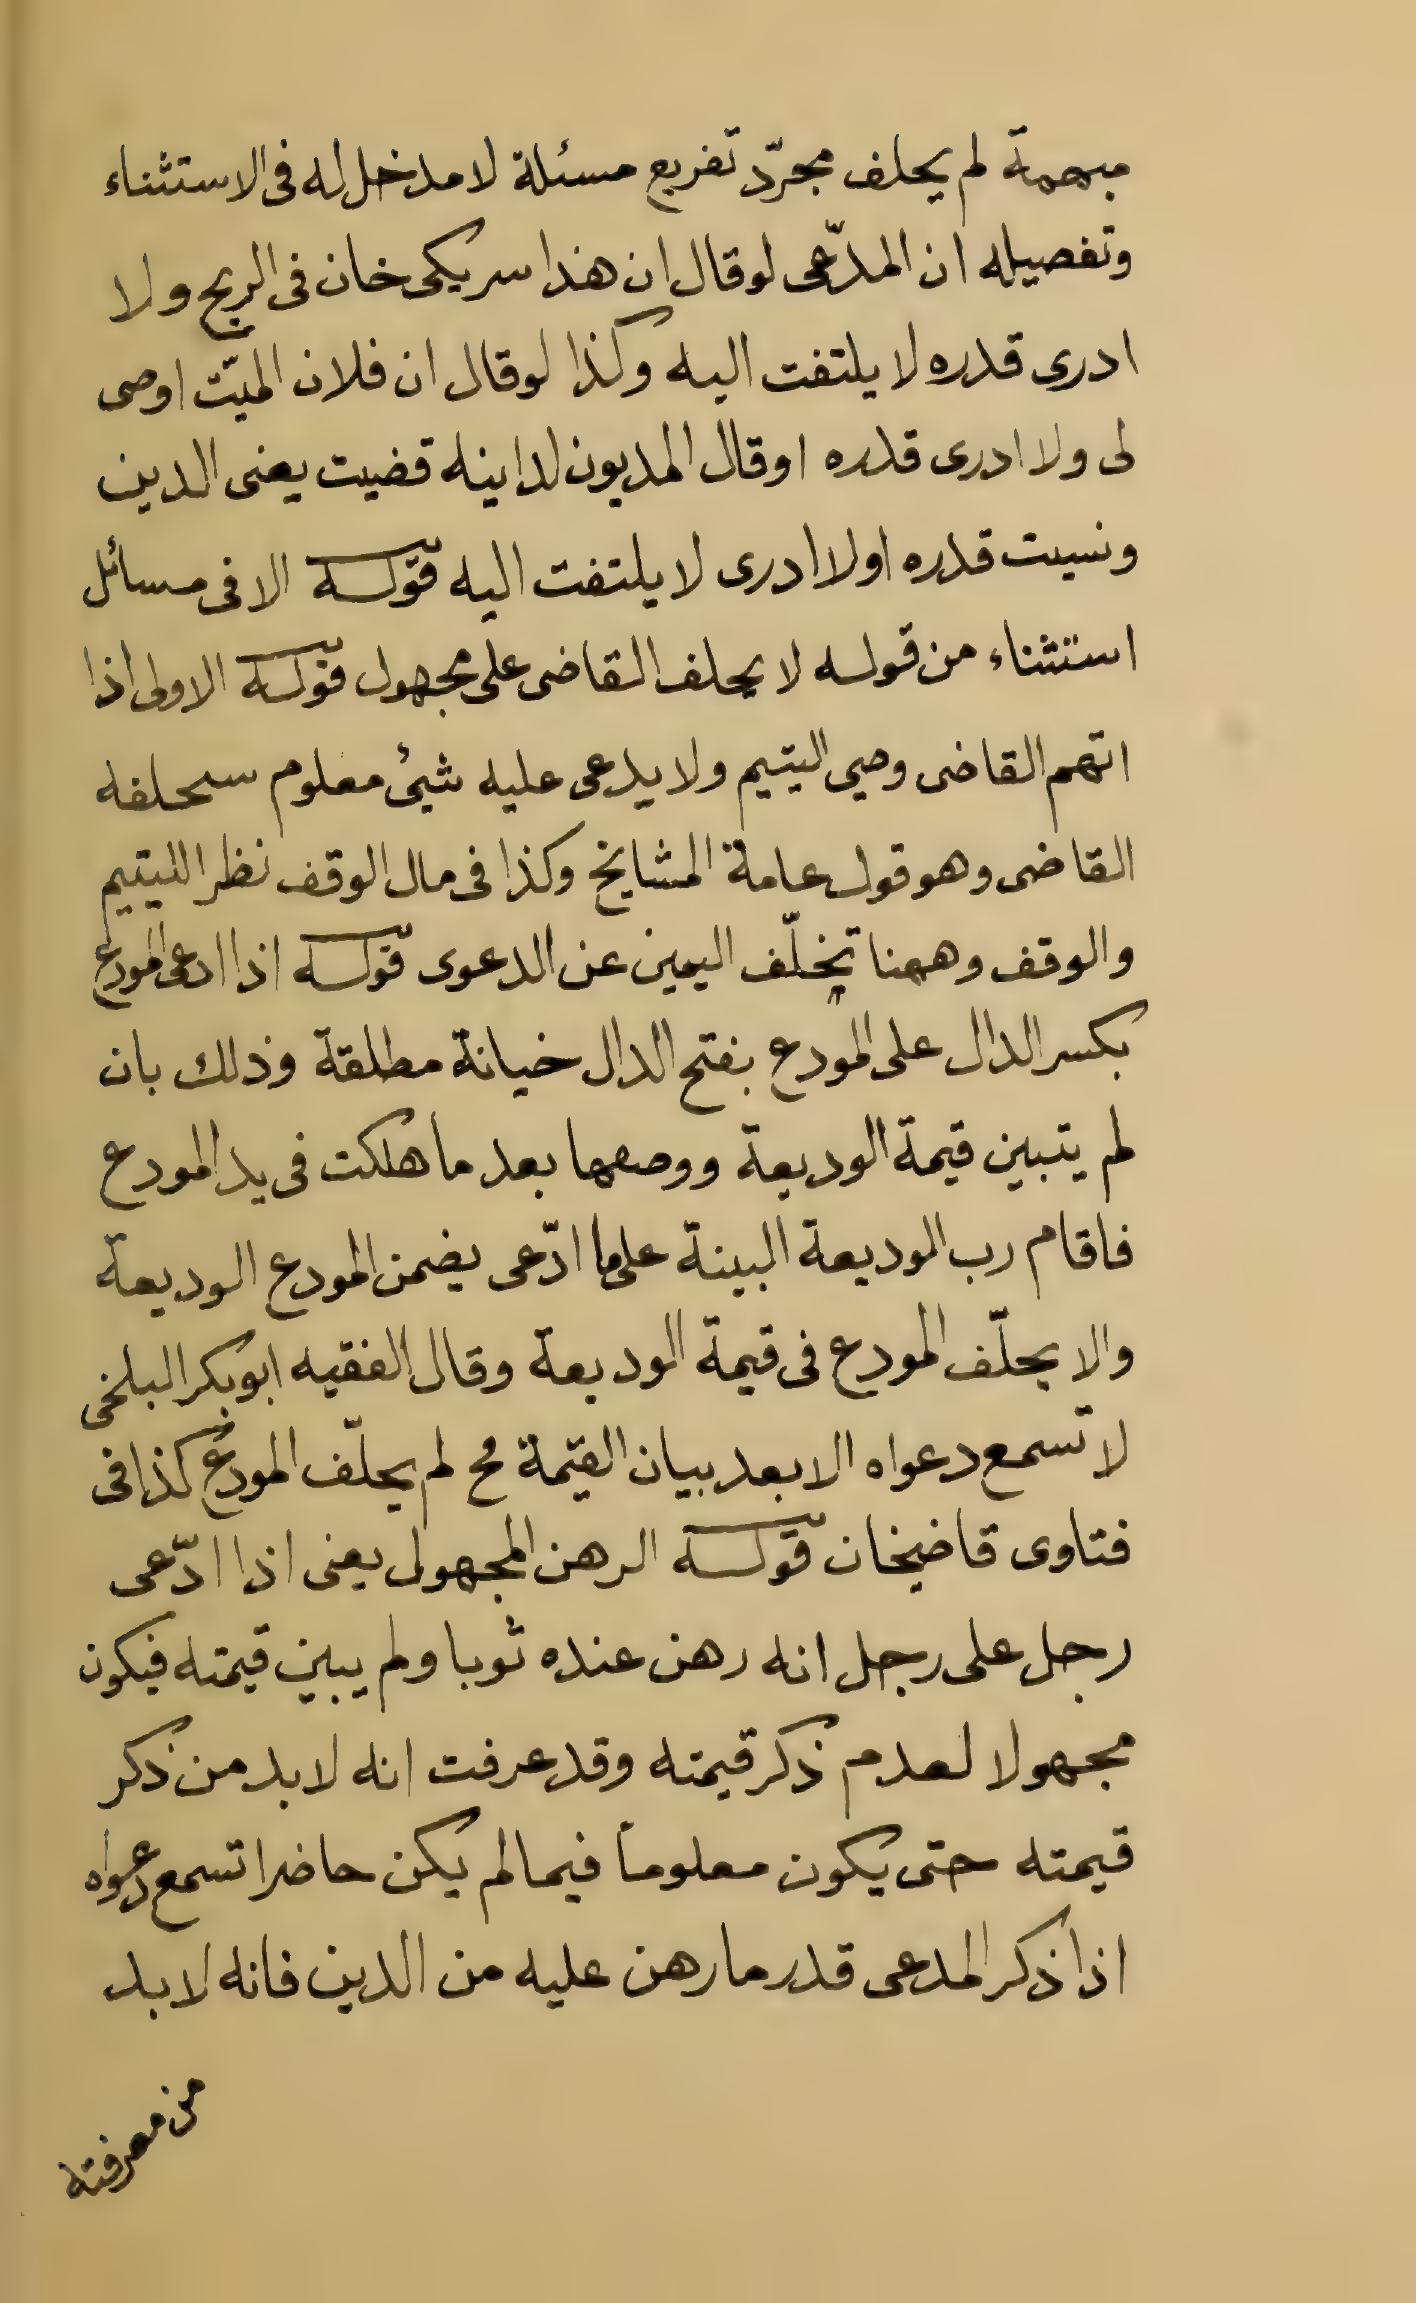 مبهمة لم يحلف مجرّد تفريع مسئلة لا مدخل له فى الاستثناء
وتفصيله ان المدّعى لو قال ان هذا سريكى خان فى الربح ولا
ادرى قدره لا يلتفت اليه وكذا لو قال ان فلان الميّت اوصى
لى ولا ادرى قدره او قال المديون لداينه قضيت يعنى الدين
ونسيت قدره او لا ادرى لا يلتفت اليه قوله الا فى مسائل
استثناء من قوله لا يحلف القاضى على مجهول قوله الاولى اذا
اتهم القاضى وصي اليتيم ولا يدعى عليه شيئ معلوم سحلفه
القاضى وهو قول عامة المشايخ وكذا فى مال الوقف نظرا لليتيم
والوقف وههنا تخلّف اليمين عن الدعوى قوله اذا ادعى المودع
بكسر الدال على المودع بفتح الدال خيانة مطلقة وذلك بان
لم يتبين قيمة الوديعة ووصفها بعد ما هلكت فى يد المودع
فاقام رب الوديعة البينة على ما ادّعى يضمن المودع الوديعة
والا يحلّف المودع فى قيمة الوديعة وقال الفقيه ابو بكر البلخى
لا تسمع دعواه الا بعد بيان القيمة مح لم يحلّف المودع كذا فى
فتاوى قاضيخان قوله الرهن المجهول يعنى اذا ادّعى
رجل على رجل انه رهن عنده ثوبا ولم يبين قيمته فيكون
مجهولا لعدم ذكر قيمته وقد عرفت انه لا بد من ذكر
قيمته حتى يكون معلوماً فيما لم يكن حاضرا تسمع دعواه
اذا ذكر المدعى قدر ما رهن عليه من الدين فانه لا بد
من معرفته